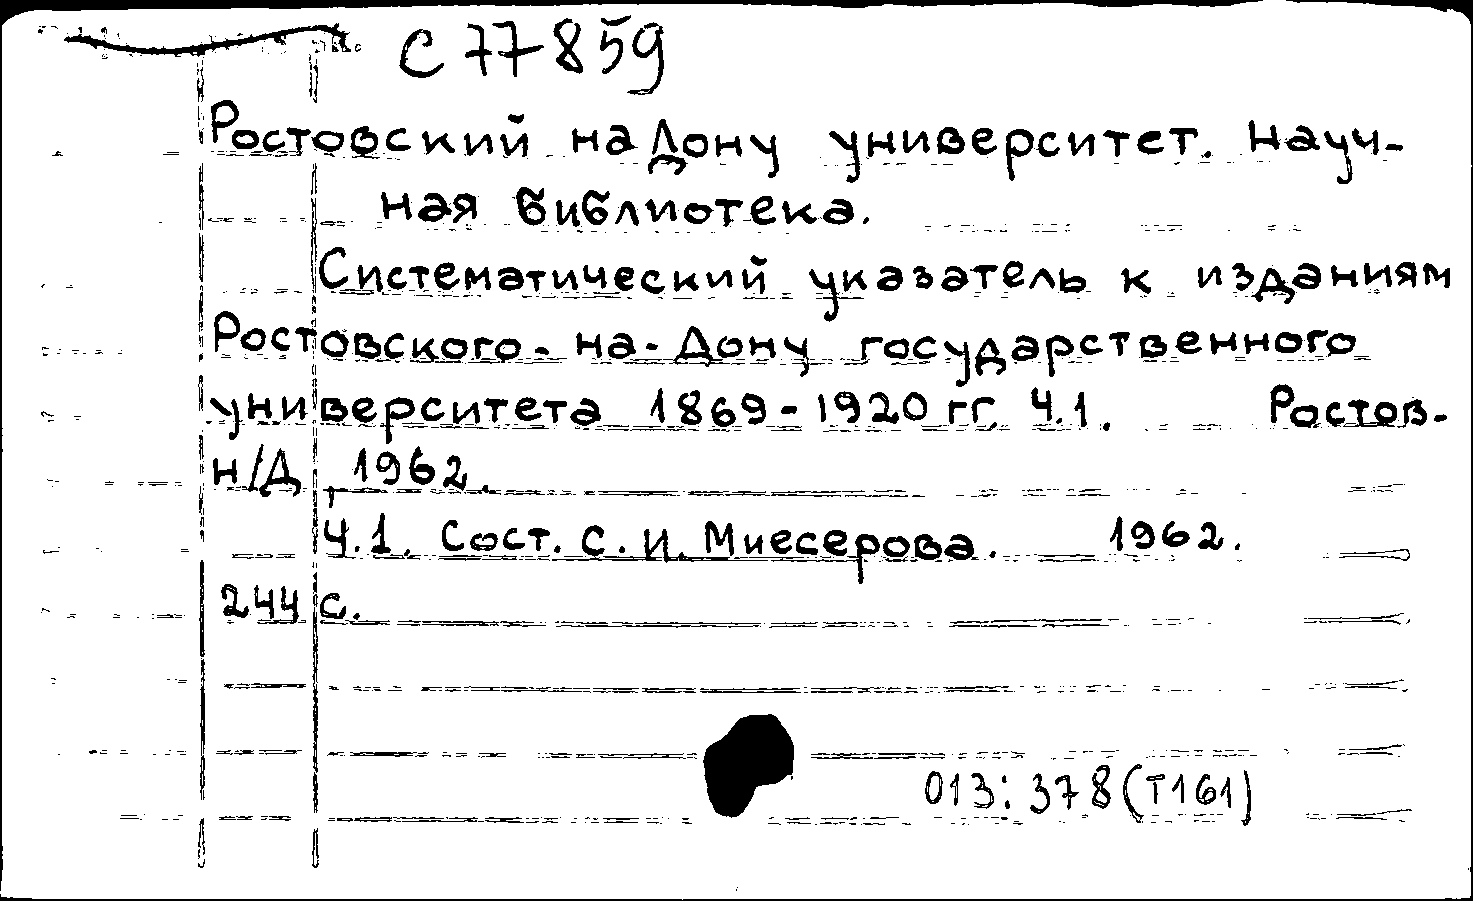 С 77859
Ростовский на Дону университет. Науч-
ная библиотека.
Систематический указатель к изданиям
Ростовского-на-Дону государственного
университета 1869-1920 гг. Ч.1. Ростов-
н/Д, 1962.
Ч.1. Сост. С. И. Миесерова. 1962.
244 с.
013:378(Т161)